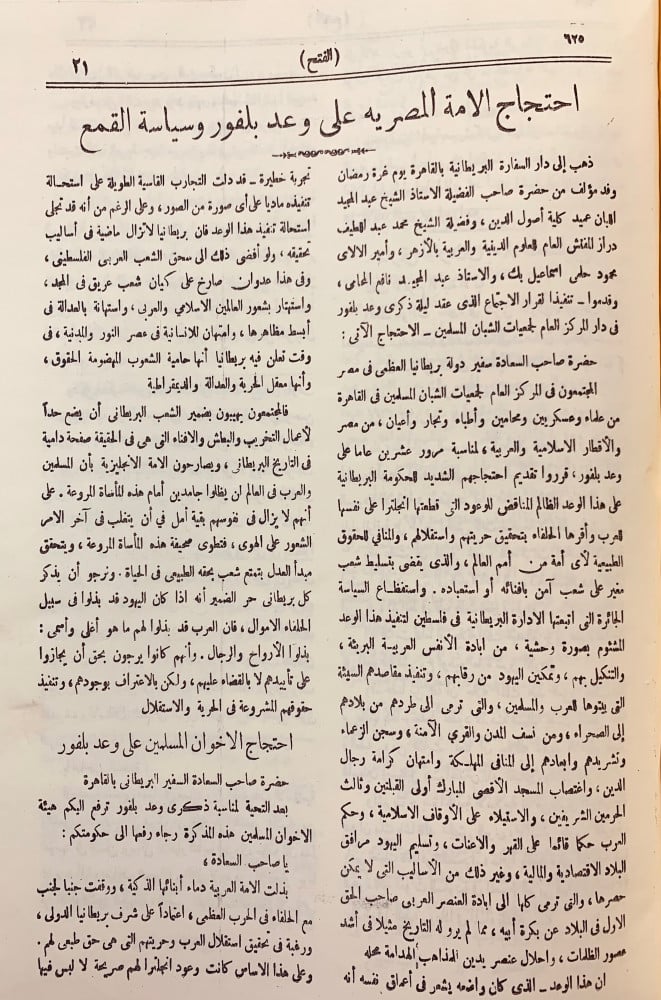 ٦٢٥
(الفتح)
٢١
احتجاج الامة المصريه على وعد بلفور وسياسة القمع
ذهب إلى دار السفارة البريطانية بالقاهرة يوم غرة رمضان
وفد مؤلف من حضرة صاحب الفضيلة الاستاذ الشيخ عبد المجيد
اللبان عميد كلية أصول الدين ، وفضيلة الشيخ محمد عبد اللطيف
دراز المفتش العام للعلوم الدينية والعربية بالأزهر ، وأمير الالاى
محمود حلمى اسماعيل بك ، والاستاذ عبد المجيد نافع المحامى ،
وقدموا - تنفيذا لقرار الاجتماع الذى عقد ليلة ذكرى وعد بلفور
فى دار المركز العام لجمعيات الشبان المسلمين - الاحتجاج الآتى :
حضرة صاحب السعادة سفير دولة بريطانيا العظمى فى مصر
المجتمعون فى المركز العام لجمعيات الشبان المسلمين فى القاهرة
من علماء وعسكريين ومحامين وأطباء وتجار وأعيان ، من مصر
والأقطار الاسلامية والعربية ، لمناسبة مرور عشرين عاما على
وعد بلفور ، قرروا تقديم احتجاجهم الشديد للحكومة البريطانية
على هذا الوعد الظالم المناقض للوعود التى قطعتها انجلترا على نفسها
للعرب وأقرها الحلفاء بتحقيق حريتهم واستقلالهم ، والمنافي للحقوق
الطبيعية لأى أمة من أمم العالم ، والذى يقضى بتسليط شعب
مغير على شعب آمن بافنائه أو استعباده . واستفظاع السياسة
الجائرة التى اتبعتها الادارة البريطانية فى فلسطين لتنفيذ هذا الوعد
المشئوم بصورة وحشية ، من ابادة الأنفس العربية البريئة ،
والتنكيل بهم ، وتمكين اليهود من رقابهم ، وتنفيذ مقاصدهم السيئة
التى بيتوها للعرب والمسلمين ، والتى ترمى الى طردهم من بلادهم
إلى الصحراء ، ومن نسف المدن والقرى الآمنة ، وسجن الزعماء
وتشريدهم وابعادهم إلى المنافى المهلكة وامتهان كرامة رجال
الدين ، واغتصاب المسجد الأقصى المبارك أولى القبلتين وثالث
الحرمين الشريفين ، والاستيلاء على الأوقاف الاسلامية ، وحكم
العرب حكما قائما على القهر والاعنات ، وتسليم اليهود مرافق
البلاد الاقتصادية والمالية ، وغير ذلك من الأساليب التى لا يمكن
حصرها ، والتى ترمى كلها الى ابادة العنصر العربى صاحب الحق
الاول فى البلاد عن بكرة أبيه ، مما لم يرو له التاريخ مثيلا فى أشد
عصور الظلمات ، واحلال عنصر يدين المذاهب الهدامة محله
ان هذا الوعد - الذى كان واضعه يشعر فى أعماق نفسه أنه
تجربة خطيرة - قد دلت التجارب القاسية الطويلة على استحالة
تنفيذه ماديا على أى صورة من الصور ، وعلى الرغم من أنه قد تجلى
استحالة تنفيذ هذا الوعد فان بريطانيا لاتزال ماضية فى أساليب
تحقيقه ، ولو أفضى ذلك الى سحق الشعب العربى الفلسطينى ،
وفى هذا عدوان صارخ على كيان شعب عريق فى المجد ،
واستهتار بشعور العالمين الاسلامى والعربى ، واستهانة بالعدالة فى
أبسط مظاهرها ، وامتهان للانسانية فى عصر النور والمدنية ، فى
وقت تعلن فيه بريطانيا أنها حامية الشعوب المهضومة الحقوق ،
وأنها معقل الحرية والعدالة والديمقراطية
فالمجتمعون يهيبون بضمير الشعب البريطانى أن يضع حداً
لأعمال التخريب والبطش والافناء التى هى فى الحقيقة صفحة دامية
فى التاريخ البريطانى ، ويصارحون الامة الانجليزية بأن المسلمين
والعرب فى العالم لن يظلوا جامدين أمام هذه المأساة المروعة . على
أنهم لا يزال فى نفوسهم بقية أمل فى أن يتغلب فى آخر الامر
الشعور على الهوى ، فتطوى صحيفة هذه المأساة المروعة ، ويتحقق
مبدأ العدل بتمتع شعب بحقه الطبيعى فى الحياة . ونرجو أن يذكر
كل بريطانى حر الضمير أنه اذا كان اليهود قد بذلوا فى سبيل
الحلفاء الاموال ، فان العرب قد بذلوا لهم ما هو أغلى وأسمى :
بذلوا الأرواح والرجال . وأنهم كانوا يرجون بحق أن يجازوا
على تأييدهم لا بالقضاء عليهم ، ولكن بالاعتراف بوجودهم ، وتنفيذ
حقوقهم المشروعة فى الحرية والاستقلال
احتجاج الاخوان المسلمين على وعد بلفور
حضرة صاحب السعادة السفير البريطانى بالقاهرة
بعد التحية لمناسبة ذكرى وعد بلفور ترفع اليكم هيئة
الاخوان المسلمين هذه المذكرة رجاء رفعها الى حكومتكم :
يا صاحب السعادة ،
بذلت الامة العربية دماء أبنائها الذكية ، ووقفت جنبا لجنب
مع الحلفاء فى الحرب العظمى ، اعتماداً على شرف بريطانيا الدولى ،
ورغبة فى تحقيق استقلال العرب وحريتهم التى هى حق طبيعى لهم .
وعلى هذا الاساس كانت وعود انجلترا لهم صريحة لا لبس فيها